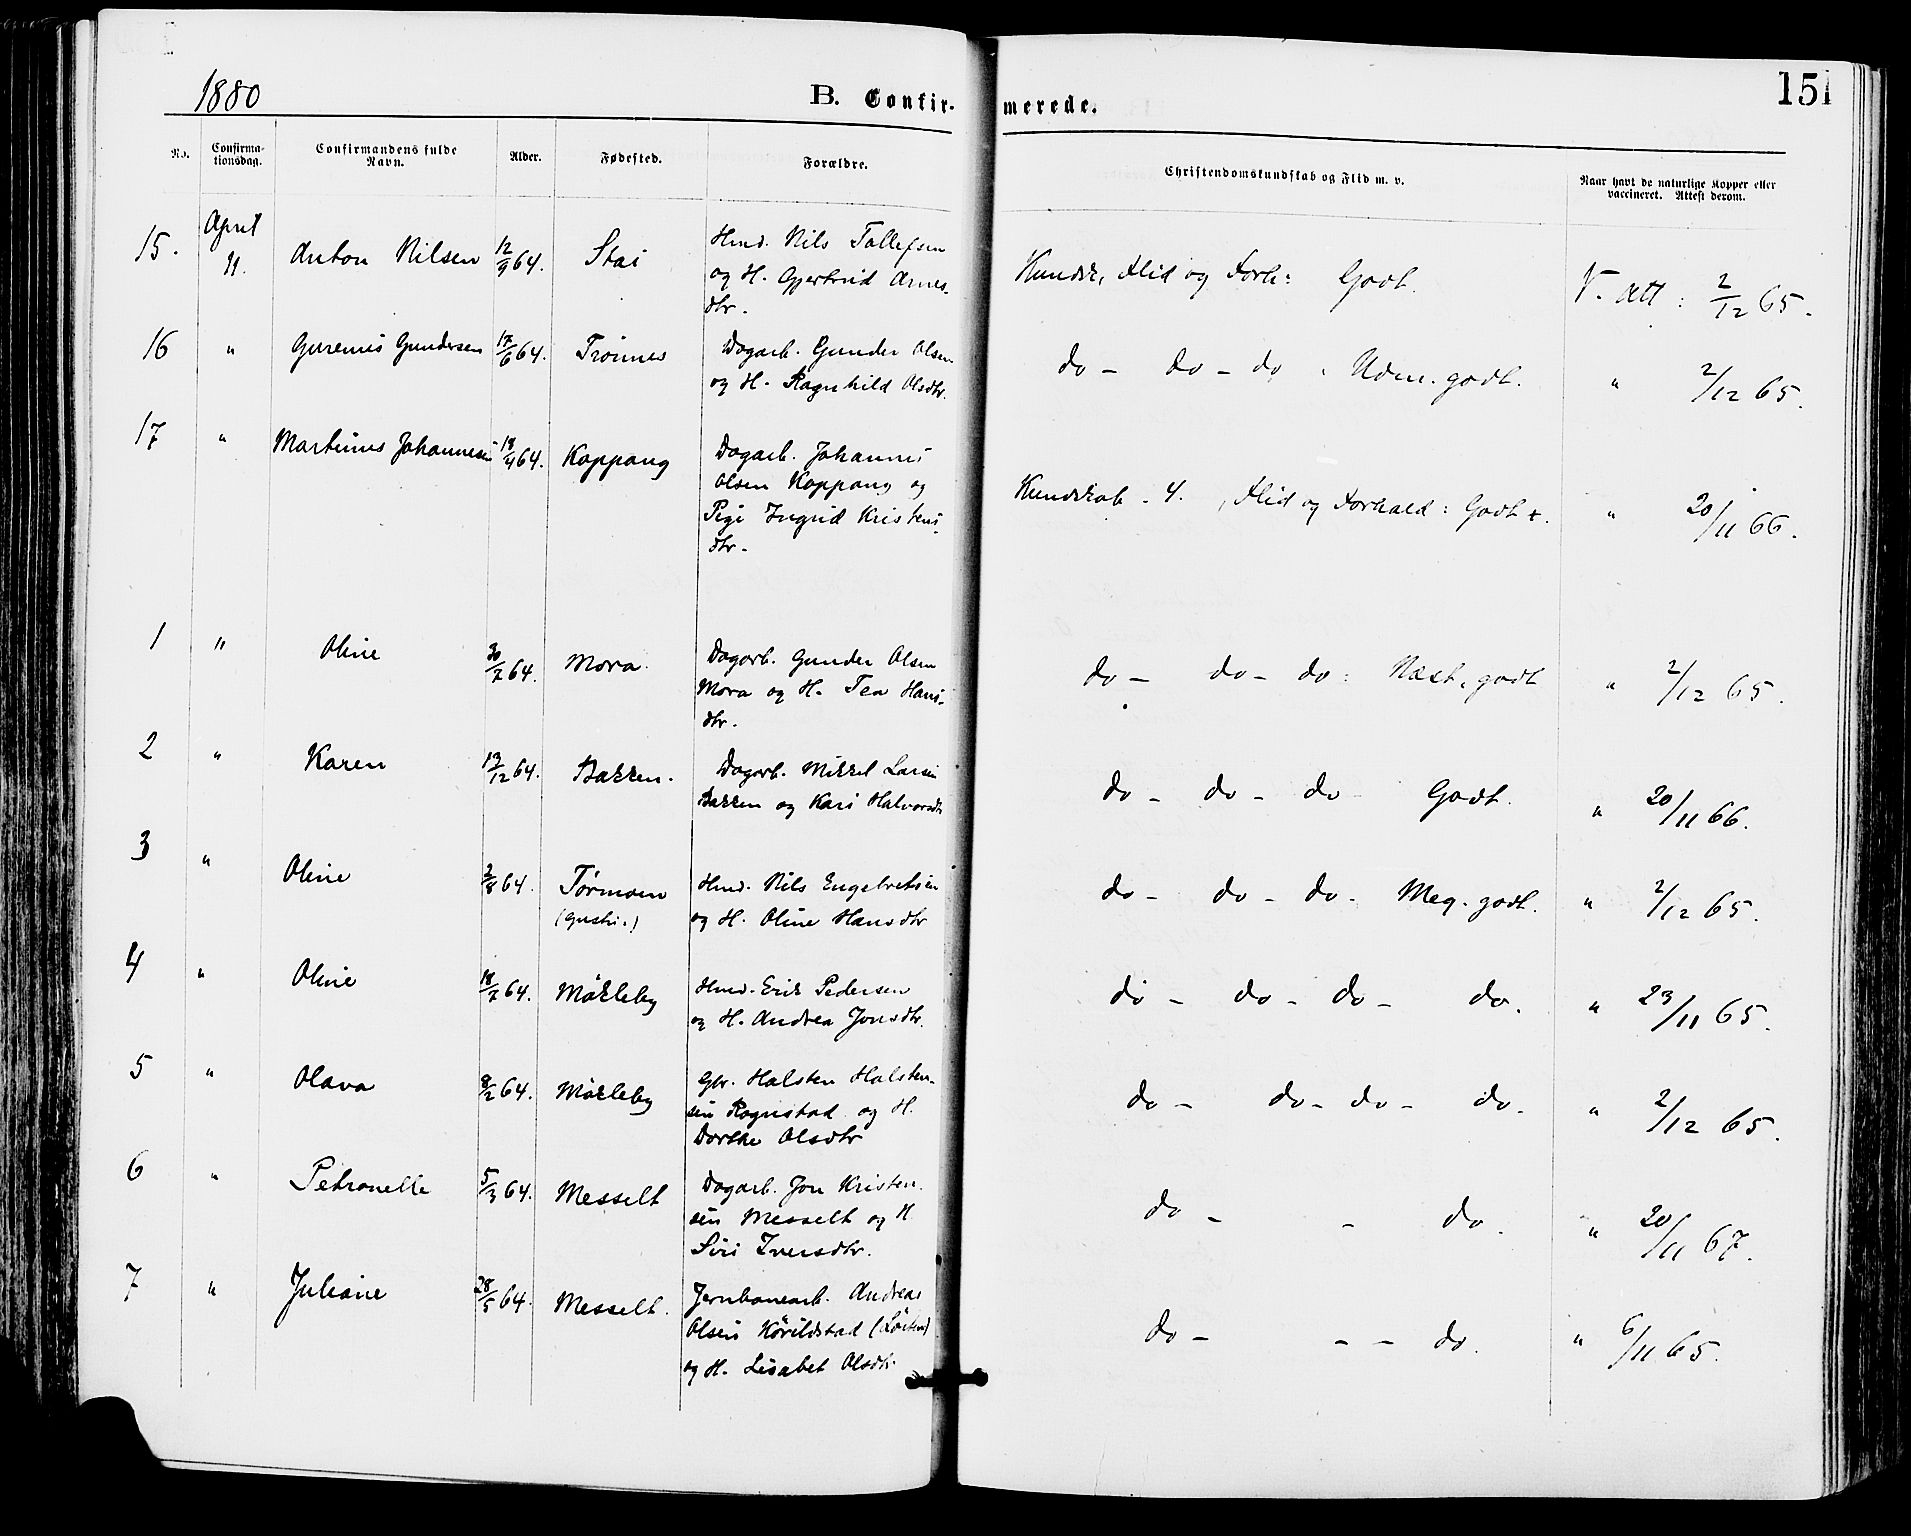 1880
B. Confirmerede.
151
No.
Confirmationsdag.
Confirmandens fulde Navn.
Alder.
Fødested.
Forældre.
Christendomskundskab og Flid m. v.
Naar havt de naturlige Kopper eller vaccineret. Attest derom.
15. April 11. Anton Nilsen 12/9 64. Stai Hmd. Nils Tollefsen
og H. Gjertrud Arnes-
dtr.
Kundsk, Flid og Forh: Godt. V. Att: 2/12 65.
16 " Gurenius Gundersen 17/6 64. Trønnes Dagarb. Gunder Olsen
og H. Ragnhild Olsdtr.
do - do - do . Udm. godt. " 2/12 65.
17 " Martinus Johannesen 18/4 64. Koppang Dagarb. Johannes
Olsen Koppang og
Pige Ingrid Kristens-
dtr.
Kundskab. 4. , Flid og Forhald: Godt +. " 20/11 66.
1 " Oline 30/7 64. Mora. Dagarb. Gunder Olsen
Mora og H. Tea Hans-
dtr.
do - do - do: Næst. godt " 2/12 65.
2 " Karen 13/12 64. Bakken. Dagarb. Mikkel Larsen
Bakken og Kari Halvorsdtr
do - do - do - Godt. " 20/11 66.
3 " Oline 2/8 64. Tørmoen Hmd. Nils Engebretsen
og H. Oline Hansdtr
do - do - do. Meg. godt. " 2/12 65.
4 " Oline 18/7 64. Mökleby Hmd. Erik Pedersen
og H. Andrea Jonsdtr.
do - do - do - do. " 23/11 65.
5 " Olava 8/2 64. Mökleby Gbr. Halsten Halsten-
sen Rognstad og H.
Dorthe Olsdtr
do - do - do - do. " 2/12 65.
6 " Petronelle 5/3 64. Messelt Dagarb. Jon Kristen-
sen Messelt og H
Siri Iversdtr.
do - - do. " 20/11 67.
7 " Juliane 28/5 64. Messelt. Jernbanearb. Andreas
Olsen Körildstad (Löiten)
og H. Lisabet Olsdtr.
do - - - do. " 6/11 65.